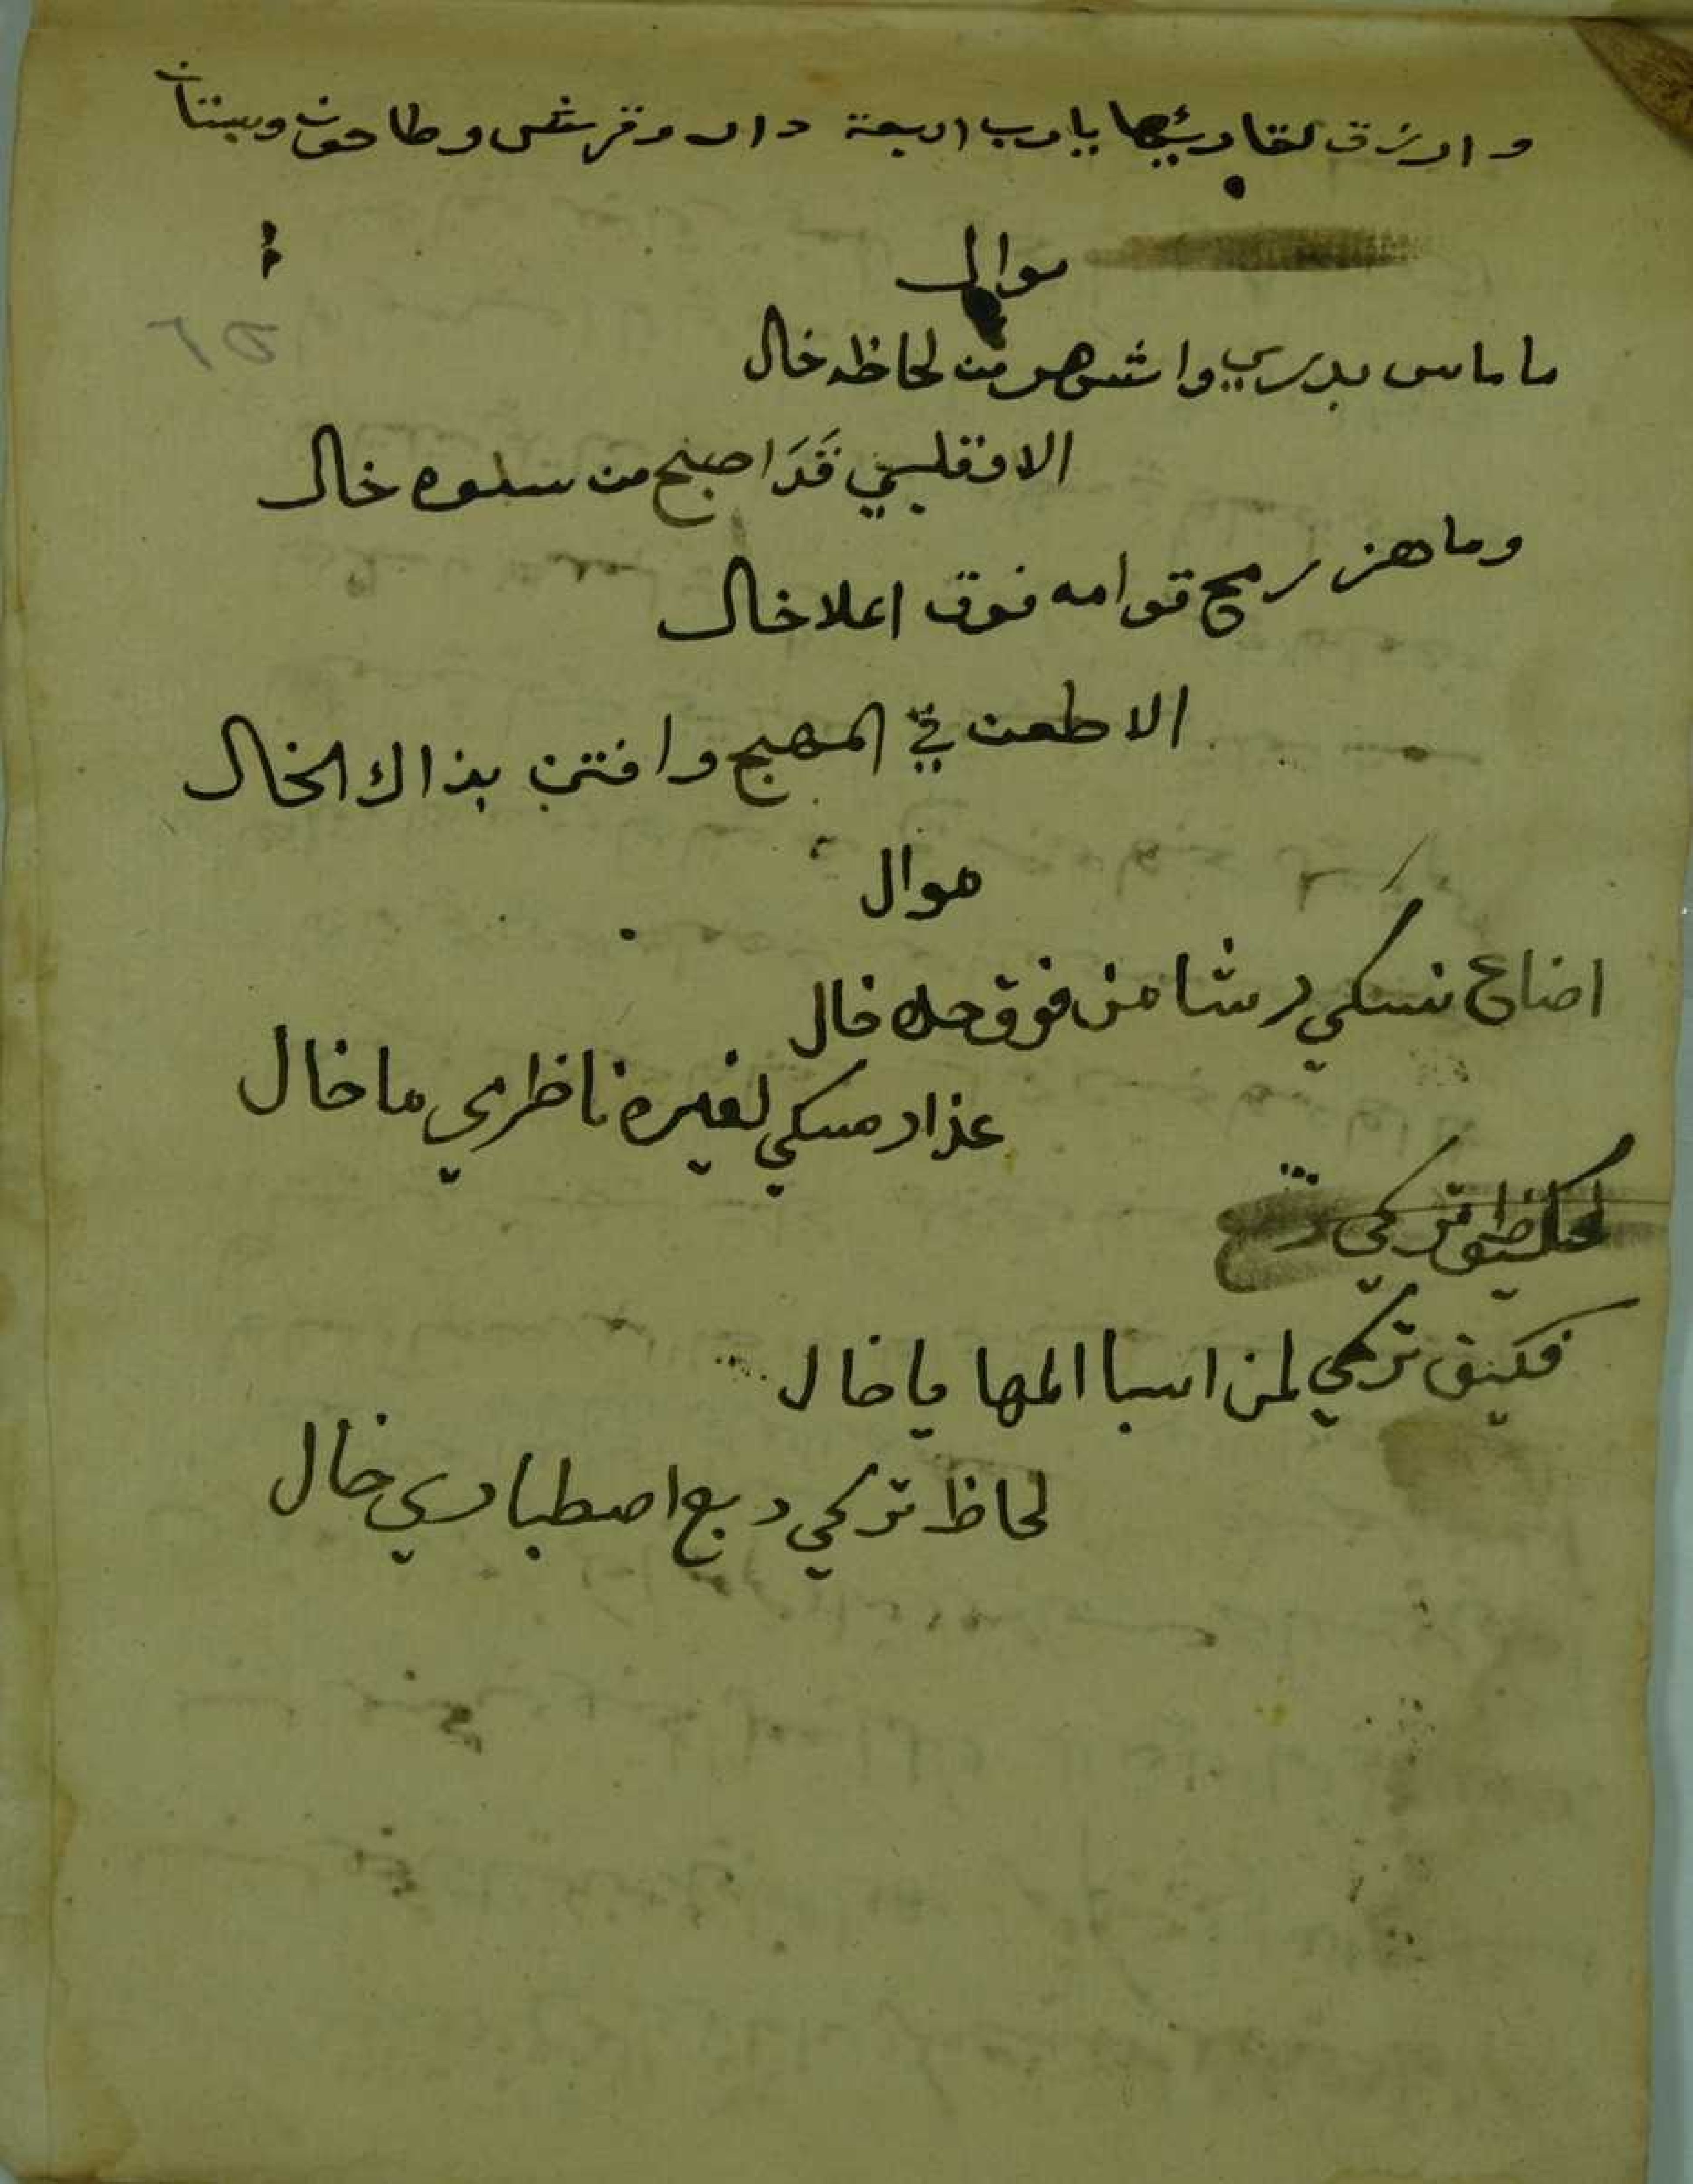 وارزق لقاريها يارب اربعة دار وقرش وطاحون وبستان
موال
ما ماس بدري واشهر من لحاظه خال
الا وقلبي قَدَ اصبح من سلوه خال
وما هز رمح قوامه فوق اعلا خال
الا طعن في المهج وافتن بذاك الخال
موال
اضاع نسكي رشا من فوق خده خال
عذار مسكي لغيره ناظري ما خال
تركي
فكيف تركي لمن اسبا المها يا خال
لحاظ تركي ربع اصطباري خال